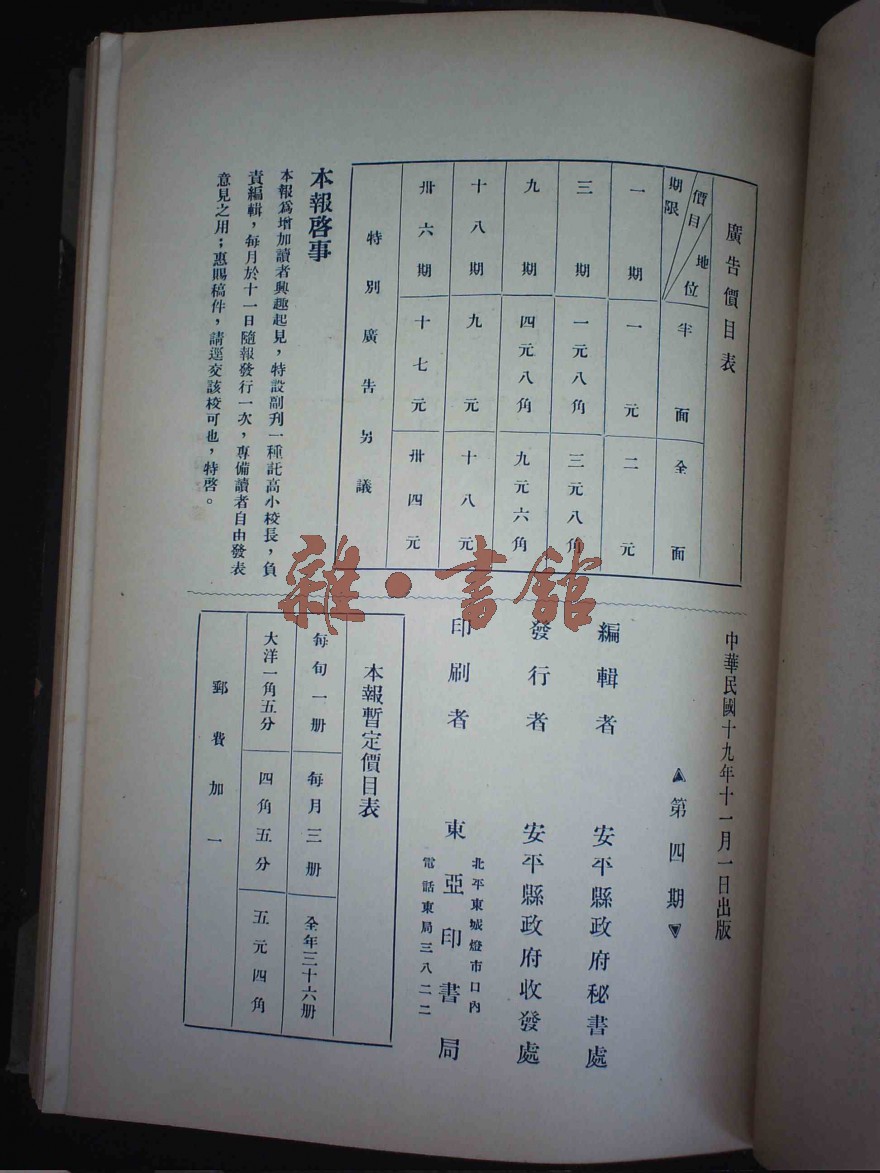 廣告價目表
期限 價目 地位 半面 全面
一期 一元 二元
三期 一元八角 三元八角
九期 四元八角 九元六角
十八期 九元 十八元
卅六期 十七元 卅四元
特別廣告另議
本報啓事
本報爲增加讀者興趣起見，特設副刋一種託高小校長，負
責編輯，每月於十一日隨報發行一次，專備讀者自由發表
意見之用；惠賜稿件，請逕交該校可也，特啓。
中華民國十九年十一月一日出版
第四期
編輯者 安平縣政府秘書處
發行者 安平縣政府收發處
印刷者 東亞印書局
北平東城燈市口內
電話東局三八二二
本報暫定價目表
每旬一册 每月三册 全年三十六册
大洋一角五分 四角五分 五元四角
郵費加一
雜·書館